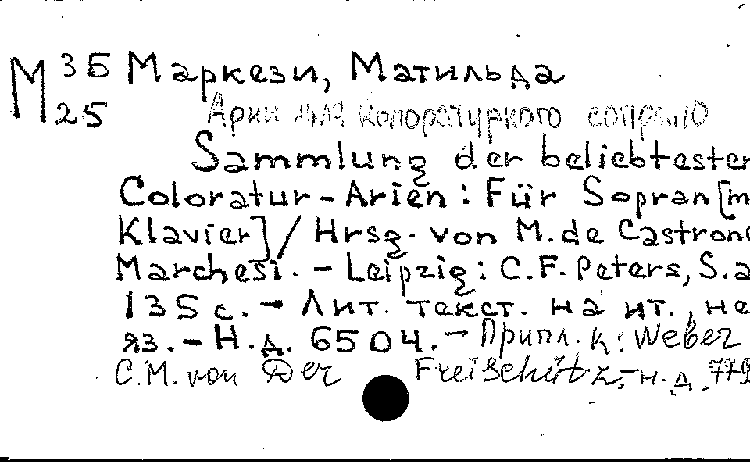 М 35 Маркези, Матильда
25 Арии для колоратурного сопрано
Sammlung der beliebtesten
Coloratur-Arien: Für Sopran [m
Klavier] / Hrsg. von M. de Castrone
Marchesi. - Leipzig: C.F. Peters, S.a
135 с. - Лит. текст. на ит., не
яз. - Н.д. 6504. - Припл. к: Weber
C.M. von Der Freischütz, - н.д. 779